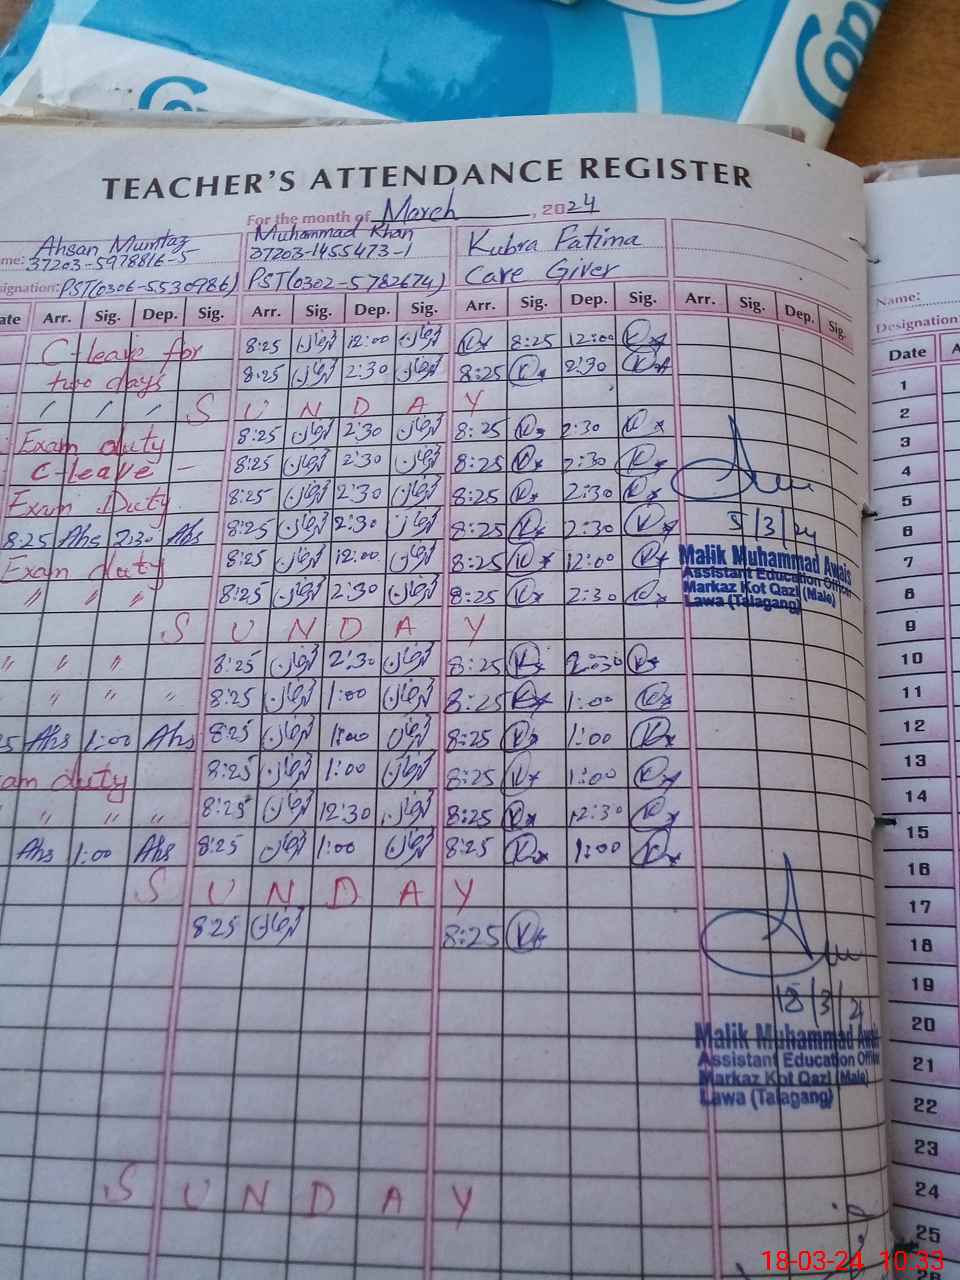 Cop
TEACHER'S ATTENDANCE REGISTER
For the month of March, 2024
me: Ahsan Mumtaz Muhammad Khan Kubra Fatima
37203-5978816-5 37203-1455473-1
signation: PST(0306-5530986) PST(0302-5782674) Care Giver
ate Arr. Sig. Dep. Sig. Arr. Sig. Dep. Sig. Arr. Sig. Dep. Sig. Arr. Sig. Dep. Sig.
C-leave for 8:25 12:00 8:25 12:00
two days 8:25 2:30 8:25 2:30
" " " S U N D A Y
Exam duty 8:25 2:30 8:25 2:30
C-leave - 8:25 2:30 8:25 2:30
Exam Duty 8:25 2:30 8:25 2:30
8:25 Ahs 2:30 Ahs 8:25 2:30 8:25 2:30
Exam duty 8:25 12:00 8:25 12:00
" " " 8:25 2:30 8:25 2:30
S U N D A Y
" " " 8:25 2:30 8:25 2:30
" " " " 8:25 1:00 8:25 1:00
25 Ahs 1:00 Ahs 8:25 1:00 8:25 1:00
am duty 8:25 1:00 8:25 1:00
" " " 8:25 12:30 8:25 12:30
Ahs 1:00 Ahs 8:25 1:00 8:25 1:00
S U N D A Y
825 8:25
S U N D A Y
5/3/24
Malik Muhammad Awais
Assistant Education Officer
Markaz Kot Qazi (Male)
Lawa (Talagang)
18/3/2
Malik Muhammad Awais
Assistant Education Offi
Markaz Kot Qazi (Male)
Lawa (Talagang)
Name:
Designation:
Date A
1
2
3
4
5
6
7
8
9
10
11
12
13
14
15
16
17
18
19
20
21
22
23
24
25
26
18-03-24 10:33